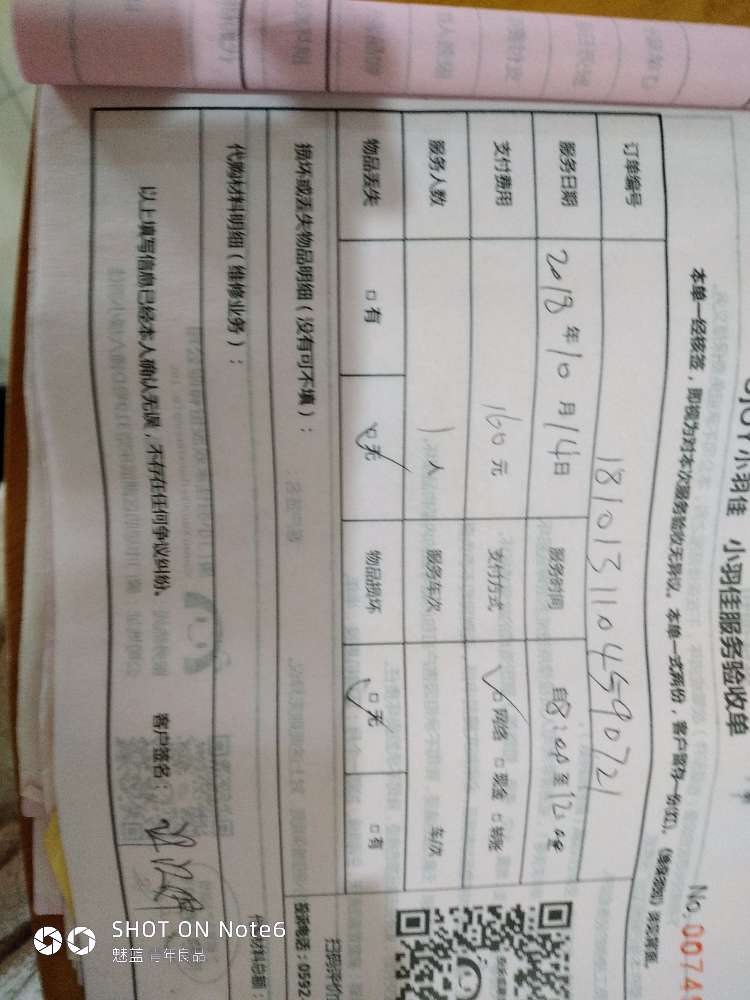 小羽佳 小羽佳服务验收单
No.0074
本单一经核签，即视为对本次服务验收无异议。本单一式两份，客户留存一份(红)。
订单编号 1810131104590721
服务日期 2018年10月14日 服务时间 自8:00至12:00
支付费用 160元 支付方式 □网络 □现金 □转账
服务人数 1人 服务车次 车次
物品丢失 □有 □无 物品损坏 □无 □有
损坏或丢失物品明细（没有可不填）：
代购材料明细（维修业务）：
材料总额：
以上填写信息已经本人确认无误，不存在任何争议纠纷。 客户签名：
投诉电话：0592
SHOT ON Note6
魅蓝 青年良品